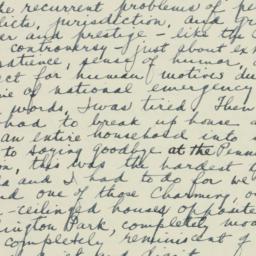 the recurrent problems of pe
licts, jurisdiction, and gr
er and prestige - like the C
controversy - just about exh
patience, sense of humor, a
ect for human motives du
me of national emergency
words, I was tired. Then
had to break up house a
an entire household into s
to saying goodbye at the Penn
on, this was the hardest t
da and I had to do for we
nd one of those charming, o
-ceilinged houses opposite
rington Park, completely mod
completely reminiscent of